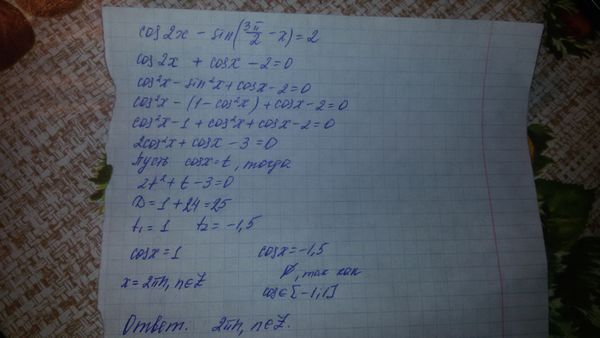 cos2x - sin(3π/2 - x) = 2
cos2x + cosx - 2 = 0
cos²x - sin²x + cosx - 2 = 0
cos²x - (1 - cos²x) + cosx - 2 = 0
cos²x - 1 + cos²x + cosx - 2 = 0
2cos²x + cosx - 3 = 0
Пусть cosx = t, тогда
2t² + t - 3 = 0
D = 1 + 24 = 25
t₁ = 1 t₂ = -1,5
cosx = 1 cosx = -1,5
x = 2πn, n∈Z ∅, так как
cos∈[-1,1]
Ответ. 2πn, n∈Z.